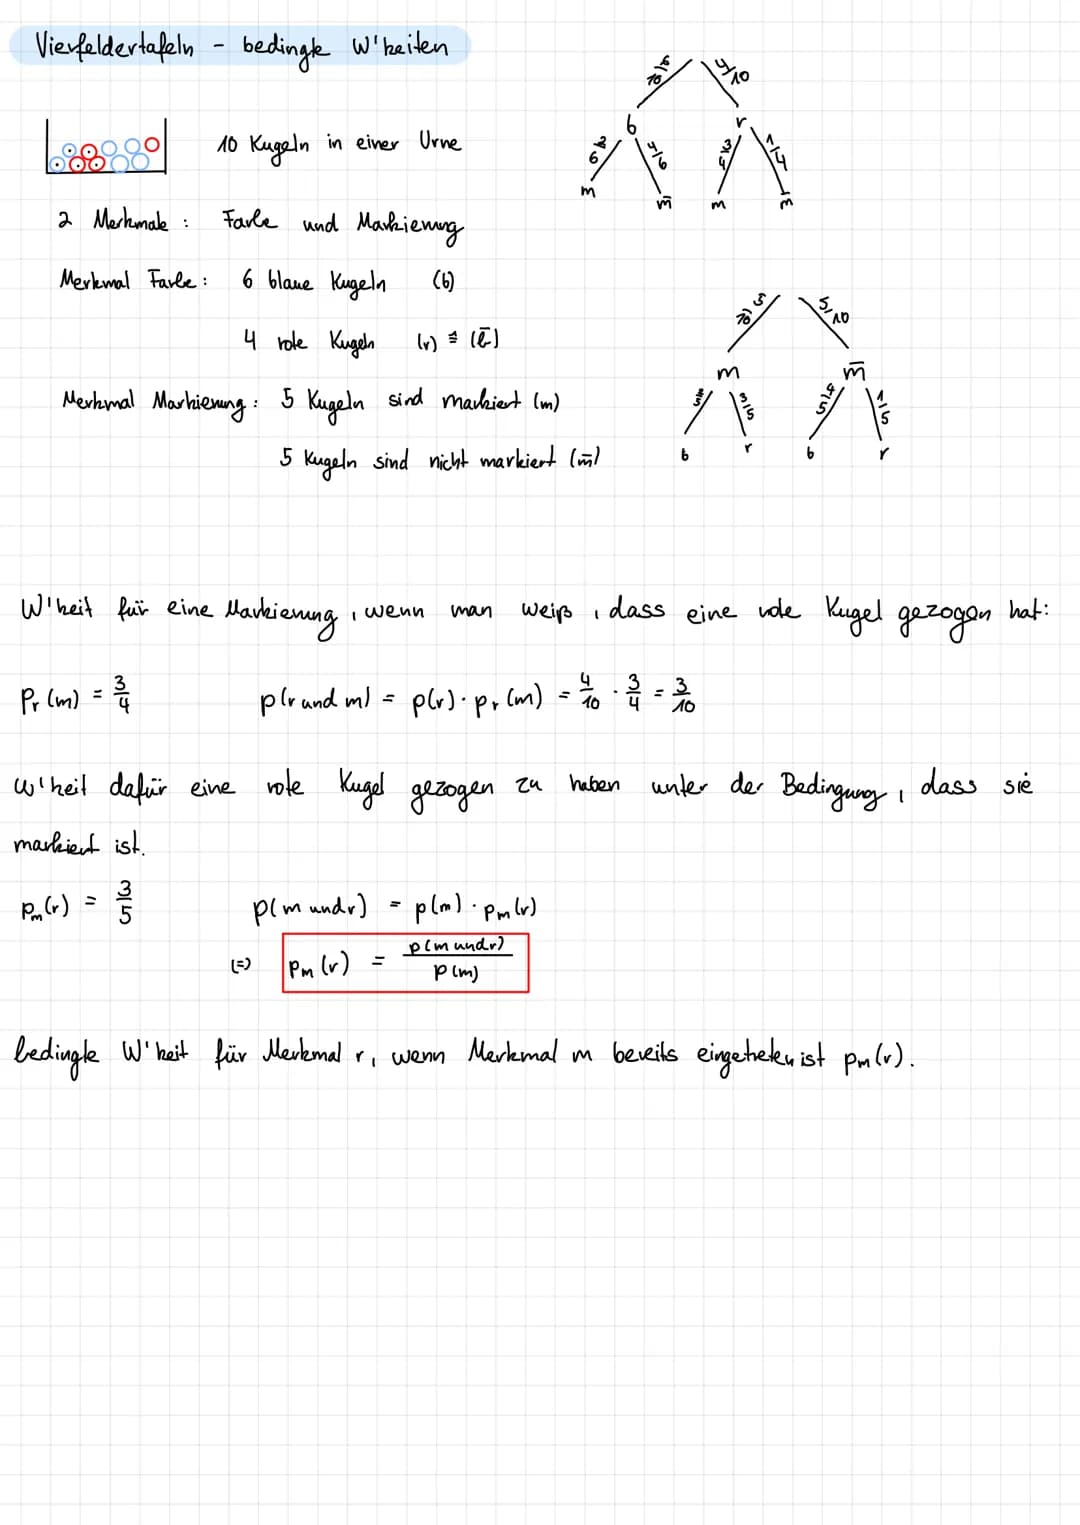 Vierfeldertafeln - bedingte W'keiten
6/10 4/10
b r
2/6 4/6 3/4 1/4
m m̄ m m̄
10 Kugeln in einer Urne
2 Merkmale : Farbe und Markierung
Merkmal Farbe : 6 blaue Kugeln (b)
4 rote Kugeln (r) ≙ (b̄)
5/10 5/10
m m̄
2/5 3/5 4/5 1/5
b r b r
Merkmal Markierung : 5 Kugeln sind markiert (m)
5 Kugeln sind nicht markiert (m̄)
W'keit für eine Markierung , wenn man weiß , dass eine rote Kugel gezogen hat:
Pr (m) = 3/4 p(r und m) = p(r) · pr (m) = 4/10 · 3/4 = 3/10
W'keit dafür eine rote Kugel gezogen zu haben unter der Bedingung , dass sie
markiert ist.
Pm(r) = 3/5 p(m und r) = p(m) · pm(r)
(=) pm (r) = p(m und r) / p(m)
bedingte W'keit für Merkmal r, wenn Merkmal m bereits eingetreten ist pm(r).